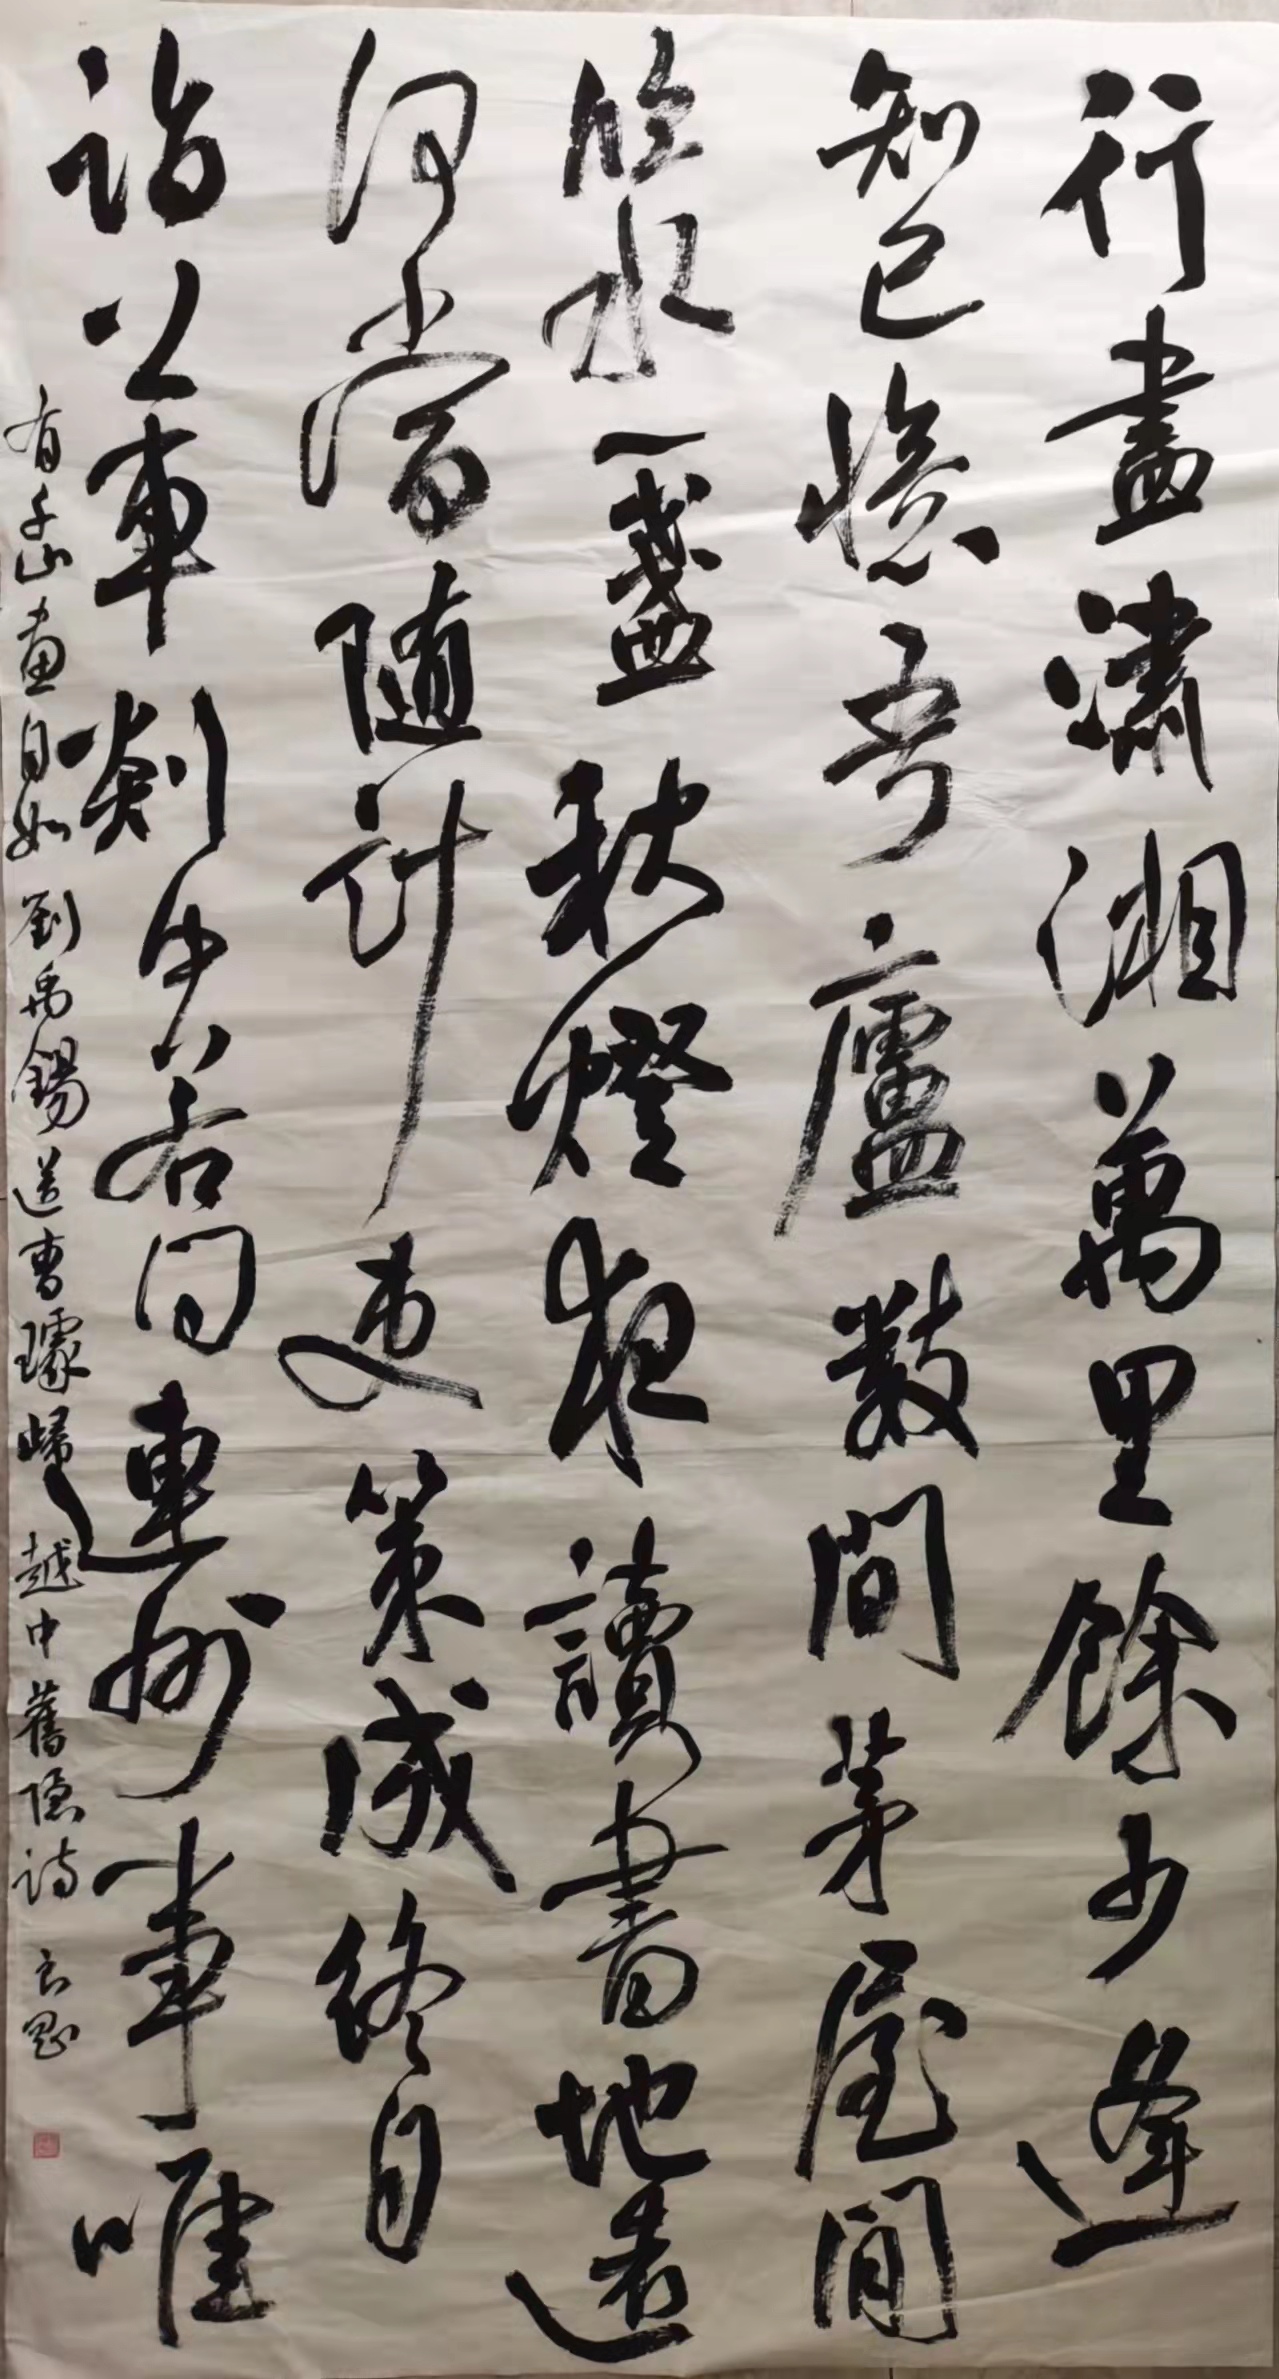 行盡瀟湘萬里餘少逢
知己憶吾廬數間茅屋閒
臨水一盞秋燈夜讀書地遠
何當隨計吏策成終自
詣公車剡中若問連州事唯
有千山畫自如 劉禹錫送曹璩歸越中舊隱詩